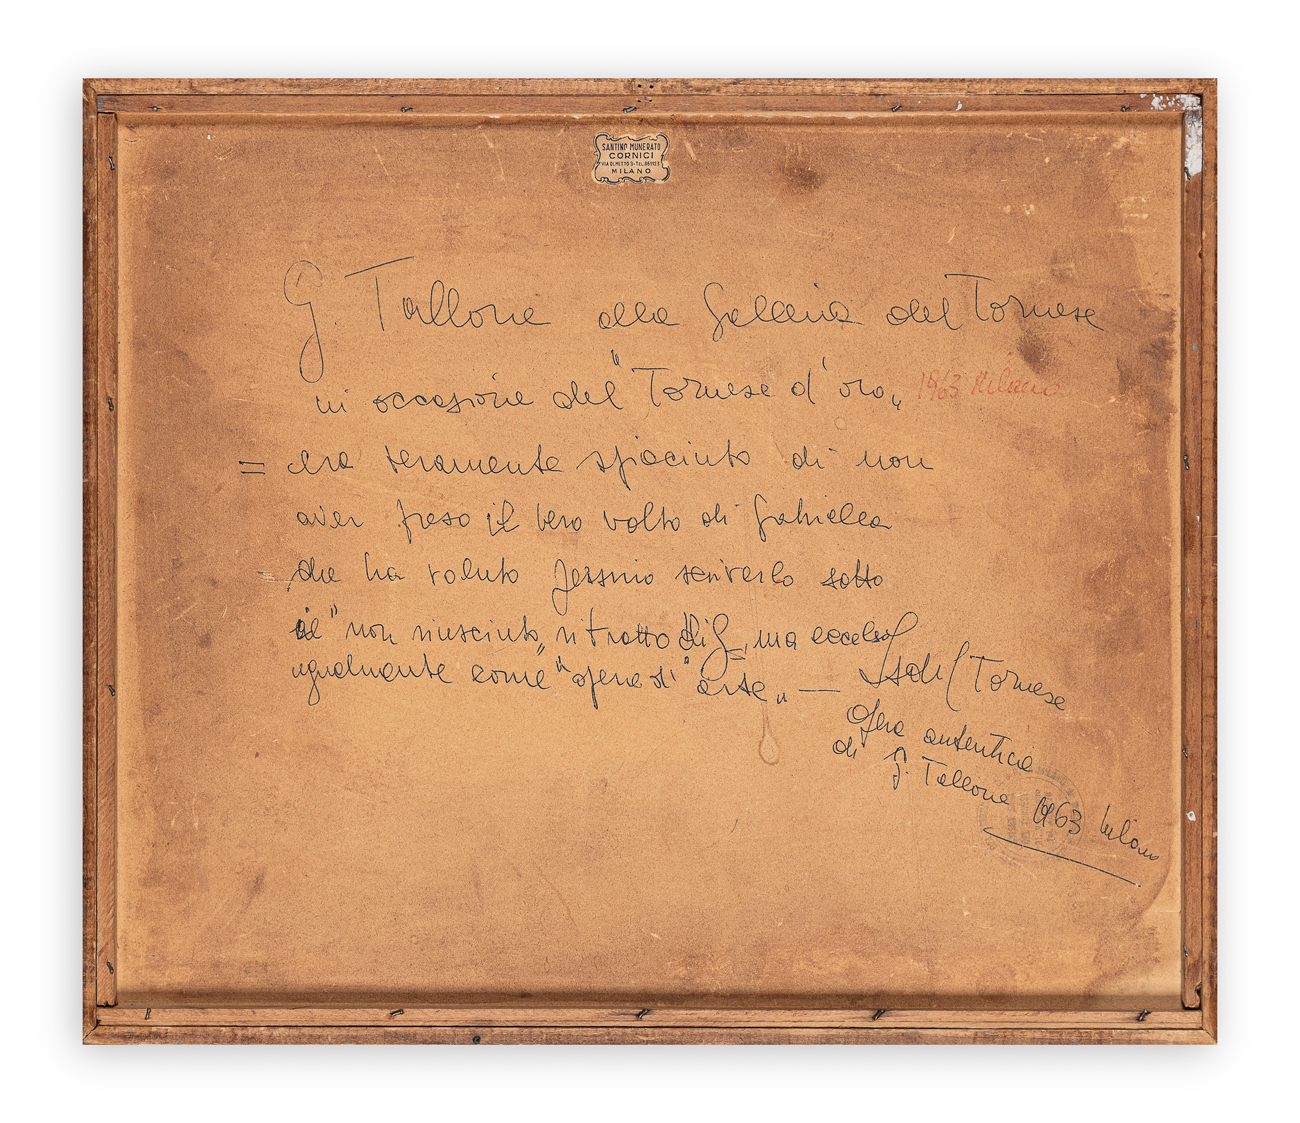 SANTINO MUNERATO
CORNICI
VIA OLMETTO 3-TEL.
MILANO
G. Tallone alla Galleria del Tornese
in occasione del "Tornese d'oro„ 1963 Milano
= era veramente spiaciuto di non
aver preso il vero volto di Gabriella
che ha voluto persino scriverlo sotto
il "non riusciuto„ ritratto di G., ma eccelso
ugualmente come "opera di" arte„ — Tornese
Opera autentica
di G. Tallone 1963 Milano